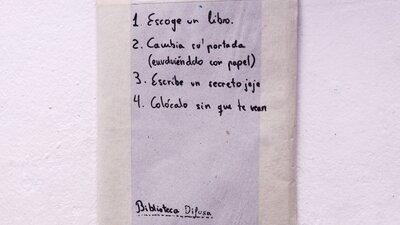 1. Escoge un libro.
2. Cambia su portada
(envolviéndolo con papel)
3. Escribe un secreto jeje
4. Colócalo sin que te vean
Biblioteca Difusa